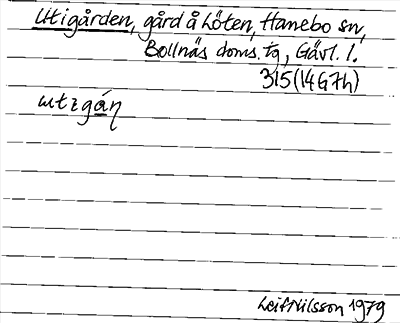 Utigården, gård å Höten, Hanebo sn,
Bollnäs doms. tg, Gävl. l.
315 (14G7h)
utigáη
Leif Nilsson 1979